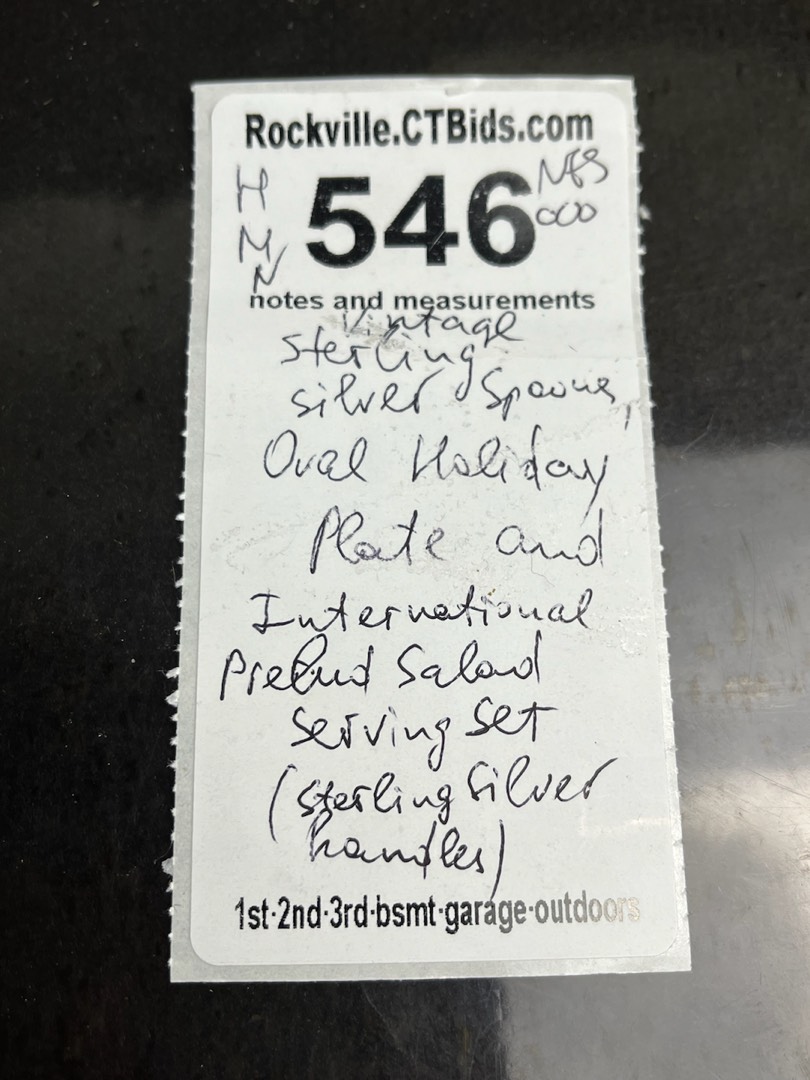 Rockville.CTBids.com
H 546 NGS
M 000
N
notes and measurements
Vintage
Sterling
silver Spoons,
Oval Holiday
Plate and
International
Prelud Salad
Serving Set
(sterling silver
handles)
1st·2nd·3rd·bsmt·garage·outdoors